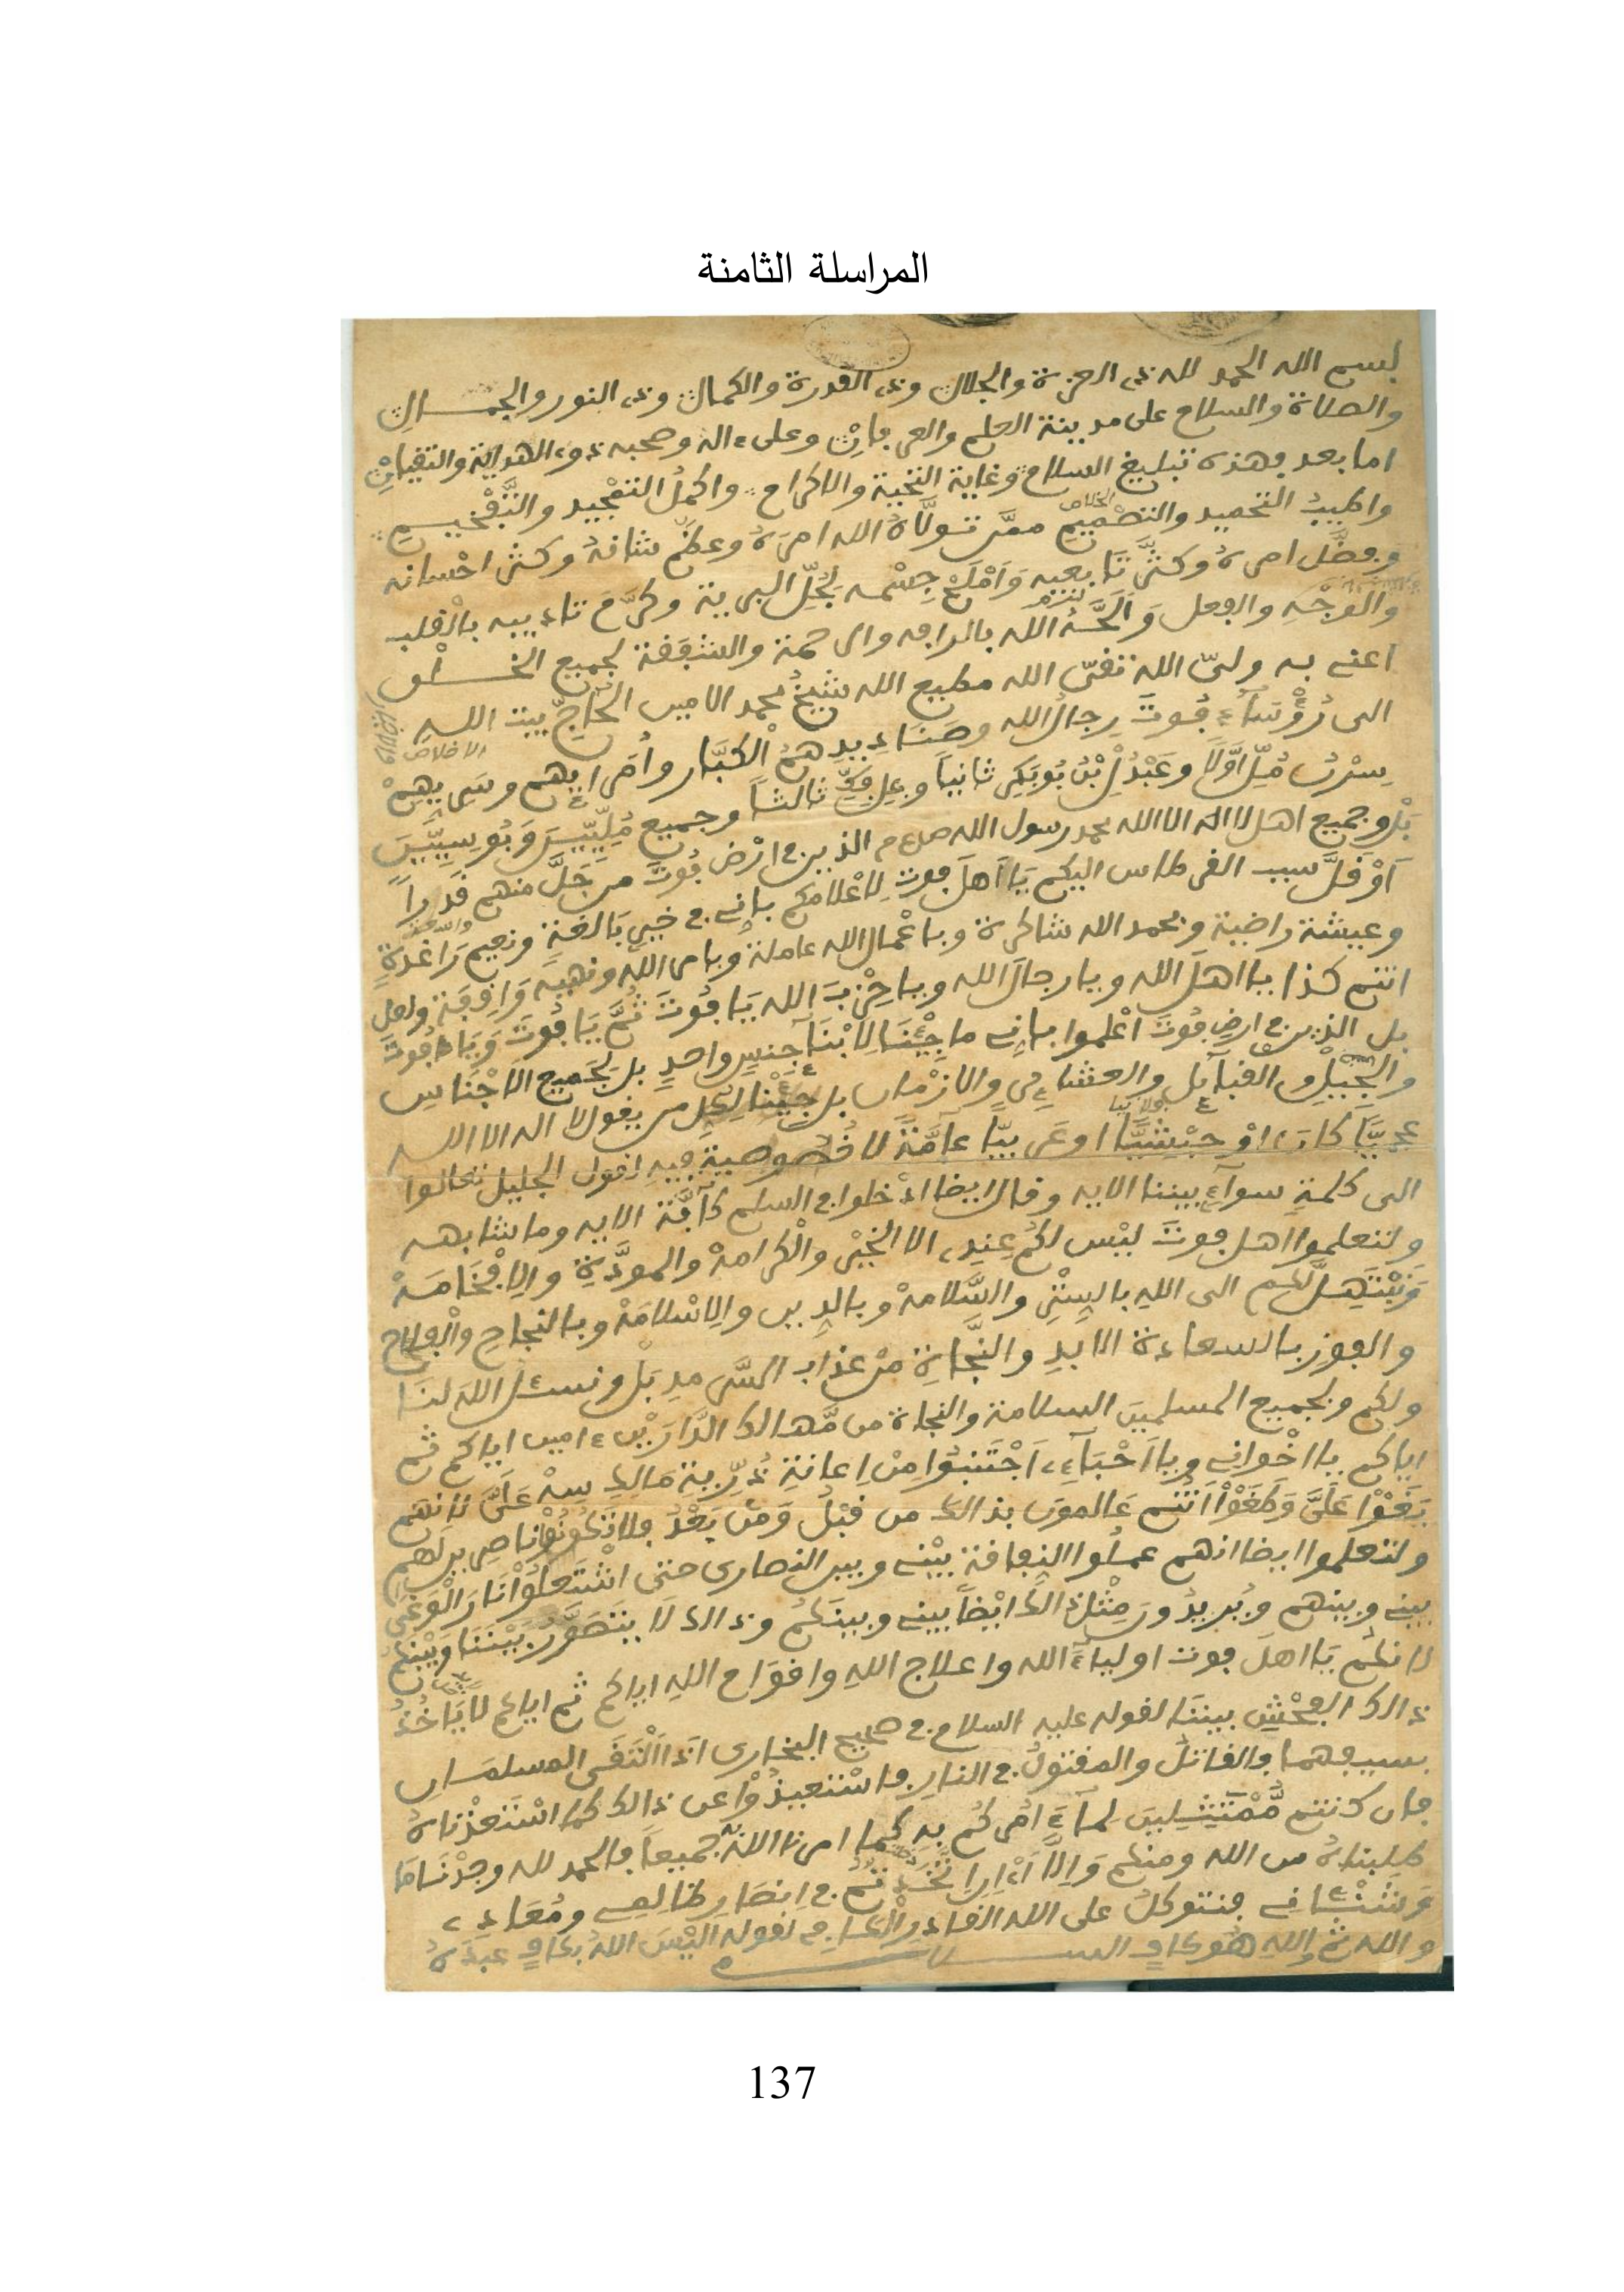 المراسلة الثامنة
بسم الله الحمد لله ذي العزة والجلال وذي القدرة والكمال وذي النور والجمال
والصلاة والسلام على مدينة العلم والعرفان وعلى ءاله وصحبه ذوي الهداية
اما بعد فهذه تبليغ السلام وغاية التحية والاكرام واكمل التمجيد والتفخيم
واطيب التحميد والتصميم ممن تولاه الله امره وعظم شانه وكثر احسانه
وفضل امره وكثر تابعيه واملح جسمه لجل البرية وكرم تاديبه بالقلب
والوجه والفعل الله بالرافه والرحمة والشفقة لجميع الخلق
اعني به ولي الله تقي الله مطيع الله شيخ محمد الامين الحاج بيت الله
الى رؤساء فوت رجال الله وصناديدهم الكبار وامرايهم
اولا ثانيا ثالثا وجميع
بل وجميع اهل لا اله الا الله محمد رسول الله صلعم الذين في ارض فوت من جل منهم قدرا
او قل سبب القرطاس اليكم يا اهل فوت لاعلامكم باني في خير بالغة ونعيم راغدة
وعيشة راضية وبحمد الله شاكرة وباعمال الله عاملة وبامر الله ونهيه واقفة
انتم كذا يا اهل الله ويا رجال الله ويا حزب الله يا فوت ثم يا فوت ويا فوت
بل الذين في ارض فوت اعلموا باني ما جئنا لابنآ جنس واحد بل لجميع الاجناس
والقبآئل والعشائر والازمان بل جئنا لكل من يقول لا اله الا الله
عجميا كان او حبشيا او عربيا عآمة لا خصوصية فيه لقول الجليل تعالوا
الى كلمة سوآء بيننا الايه وقال ايضا ادخلوا في السلم كآفة الايه وما شابهه
ولتعلموا اهل فوت ليس لكم عندي الا الخير والكرامة والمودة والافخامة
ونبتهل لكم الى الله بالستر والسلامة وبالدين والاسلامة وبالنجاح والفلاح
والفوز بالسعادة الابد والنجاة من عذاب السرمد بل ونسئل الله لنا
ولكم ولجميع المسلمين السلامة والنجاة من مهالك الدارين ءامين اياكم ثم
اياكم يا اخواني ويا احبآءي اجتنبوا من اعانة ذرية مالك سه علي لانهم
بغوا علي وطغوا انتم عالمون بذالك من قبل ومن بعد فلا تكونوا ناصرين لهم
ولتعلموا ايضا انهم عملوا النفاقة بيني وبين النصارى حتى اشتعلوا نار الوغى
بيني وبينهم ويريدون مثل ذالك ايضا بيني وبينكم وذالك لا يتصور بيننا وبينكم
لانكم يا اهل فوت اولياء الله واعلاج الله واقوام الله اياكم ثم اياكم لا ياخذ
ذالك الفحش بيننا لقوله عليه السلام في صحيح البخارى اذا التقى المسلمان
بسيفهما فالقاتل والمقتول في النار فاستعيذوا عن ذالك كما استعذناه
فان كنتم ممتثلين لمآ ءامركم به كما امرنا الله جميعا فالحمد لله وجدنا ما
طلبناه من الله ومنكم والا في انصار ظالمي ومعادي
فنتوكل على الله القادر الكافي لقوله اليس الله بكاف عبده
والله ثم والله هو كاف السلام
137